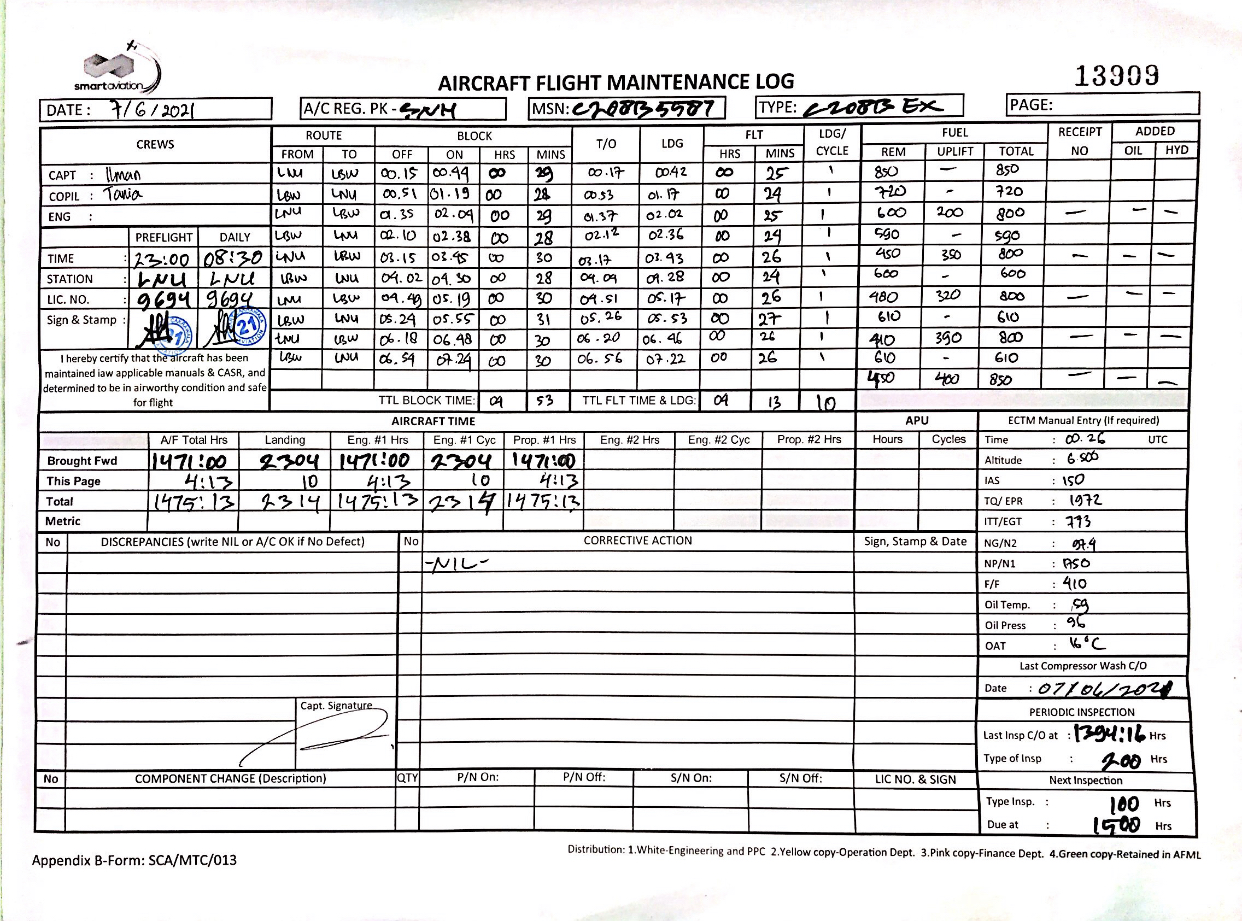 smartaviation
AIRCRAFT FLIGHT MAINTENANCE LOG
13909
DATE : 7/6/2021
A/C REG. PK - SNH
MSN: C208B5587
TYPE: C208B EX
PAGE:
CREWS ROUTE BLOCK T/O LDG FLT LDG/CYCLE FUEL RECEIPT NO ADDED
FROM TO OFF ON HRS MINS HRS MINS REM UPLIFT TOTAL OIL HYD
CAPT : Ilman LNU LBW 00.15 00.44 00 29 00.17 00.42 00 25 1 850 — 850
COPIL : Tania LBW LNU 00.51 01.19 00 28 00.53 01.17 00 24 1 720 - 720
ENG : LNU LBW 01.35 02.04 00 29 01.37 02.02 00 25 1 600 200 800 — — —
LBW LNU 02.10 02.38 00 28 02.12 02.36 00 24 1 590 - 590
PREFLIGHT DAILY
TIME 23:00 08:30 LNU LBW 03.15 03.45 00 30 03.17 03.43 00 26 1 450 350 800 — — —
STATION : LNU LNU LBW LNU 04.02 04.30 00 28 04.04 04.28 00 24 1 600 - 600
LIC. NO. : 9694 9694 LNU LBW 04.49 05.19 00 30 04.51 05.17 00 26 1 480 320 800 — — —
Sign & Stamp : 21 LBW LNU 05.24 05.55 00 31 05.26 05.53 00 27 1 610 - 610
LNU LBW 06.18 06.48 00 30 06.20 06.46 00 26 1 410 390 800 — — —
LBW LNU 06.54 07.24 00 30 06.56 07.22 00 26 1 610 - 610
450 400 850 — — —
I hereby certify that the aircraft has been
maintained iaw applicable manuals & CASR, and
determined to be in airworthy condition and safe
for flight
TTL BLOCK TIME: 04 53 TTL FLT TIME & LDG: 04 13 10
AIRCRAFT TIME APU ECTM Manual Entry (If required)
A/F Total Hrs Landing Eng. #1 Hrs Eng. #1 Cyc Prop. #1 Hrs Eng. #2 Hrs Eng. #2 Cyc Prop. #2 Hrs Hours Cycles
Brought Fwd 1471:00 2304 1471:00 2304 1471:00
This Page 4:13 10 4:13 10 4:13
Total 1475:13 2314 1475:13 2314 1475:13
Metric
Time : 00.26 UTC
Altitude : 6500
IAS : 150
TQ/ EPR : 1972
ITT/EGT :
NG/N2 :
NP/N1 :
F/F : 410
Oil Temp. : 59
Oil Press : 96
OAT : 16°C
No DISCREPANCIES (write NIL or A/C OK if No Defect) No CORRECTIVE ACTION Sign, Stamp & Date
-NIL-
Capt. Signature
Last Compressor Wash C/O
Date : 07/06/2021
PERIODIC INSPECTION
Last Insp C/O at : 1394:16 Hrs
Type of Insp : 200 Hrs
Next Inspection
Type Insp. : 100 Hrs
Due at : 1500 Hrs
No COMPONENT CHANGE (Description) QTY P/N On: P/N Off: S/N On: S/N Off: LIC NO. & SIGN
Appendix B-Form: SCA/MTC/013
Distribution: 1.White-Engineering and PPC 2.Yellow copy-Operation Dept. 3.Pink copy-Finance Dept. 4.Green copy-Retained in AFML